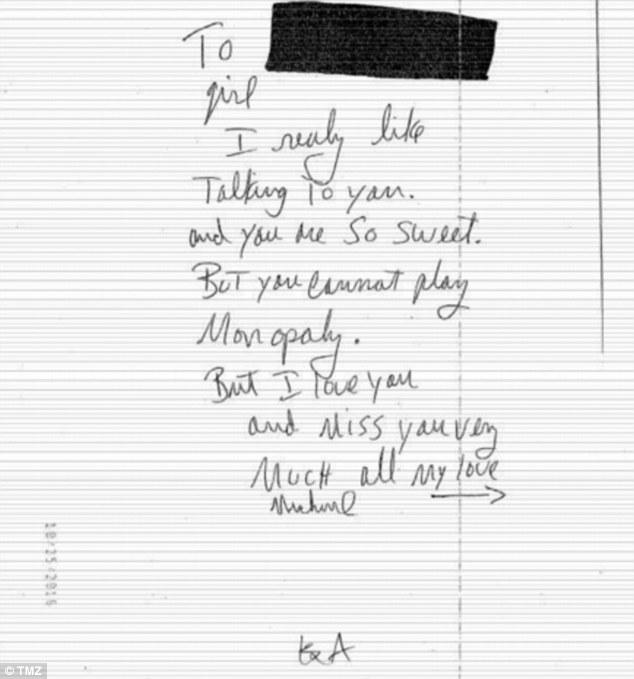 To
girl
I realy like
Talking To you.
and you are So Sweet.
But you cannot play
Monopaly.
But I love you
and Miss you very
Much all My love
Michael
10/25/2016
© TMZ